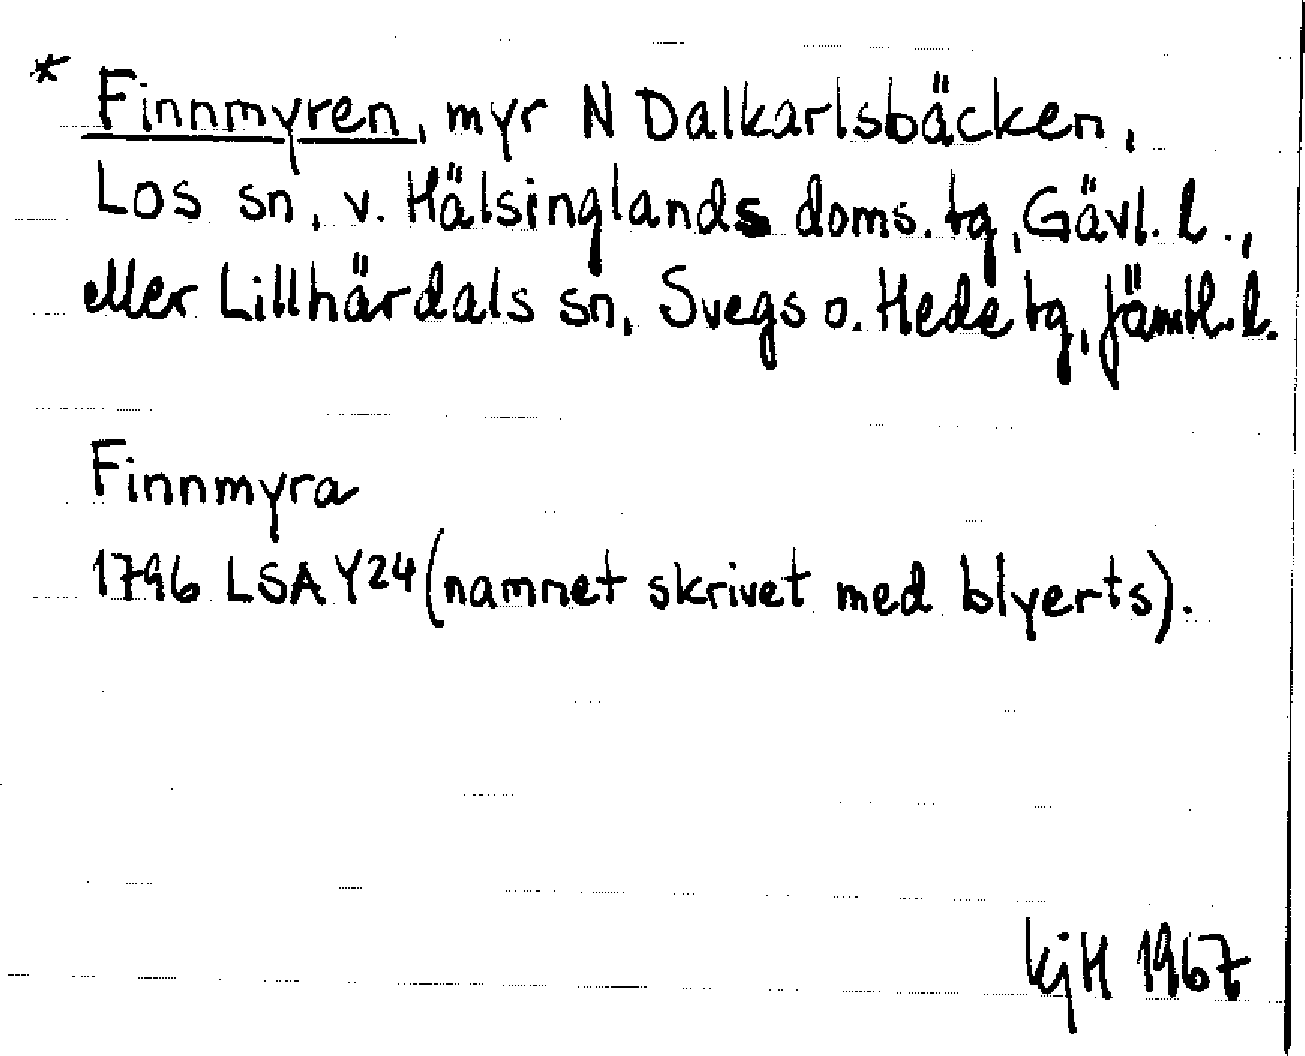 * Finnmyren, myr N Dalkarlsbäcken,
Los sn, v. Hälsinglands doms. tg, Gävl. l.,
eller Lillhärdals sn, Svegs o. Hede tg, Jämtl. l.
Finnmyra
1796 LSA Y24 (namnet skrivet med blyerts).
KjH 1967